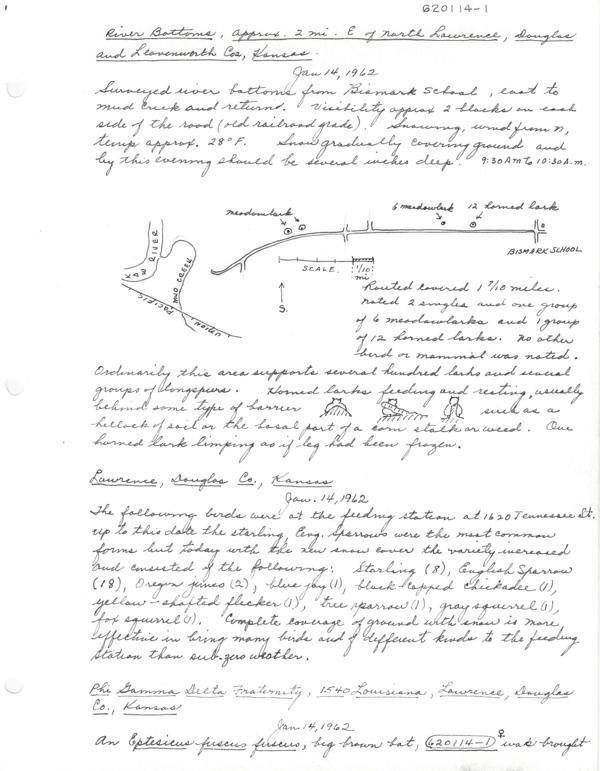 620114-1
River Bottoms, approx. 2 mi. E of North Lawrence, Douglas
and Leavenworth Cos, Kansas.
Jan 14, 1962
Surveyed river bottoms from Bismark School, east to
mud creek and return. Visibility approx 2 blocks on each
side of the road (old railroad grade). Snowing, wind from N,
temp approx. 28°F. Snow gradually covering ground and
by this evening should be several inches deep. 9:30 AM to 10:30 A.M.
meadowlark
6 meadowlark 12 horned lark
BISMARK SCHOOL
KAW RIVER
MUD CREEK
UNION PACIFIC
SCALE.
1/10
mi
S.
Routed covered 1 7/10 miles.
noted 2 singles and one group
of 6 meadowlarks and 1 group
of 12 horned larks. No other
bird or mammal was noted.
Ordinarily this area supports several hundred larks and several
groups of longspurs. Horned larks feeding and resting, usually
behind some type of barrier such as a
hillock of soil or the basal part of a corn stalk or weed. One
horned lark limping as if leg had been frozen.
Lawrence, Douglas Co., Kansas
Jan. 14, 1962
The following birds were at the feeding station at 1620 Tennessee St.
up to this date the starling, Eng. Sparrows were the most common
forms but today with the new snow cover the variety increased
and consisted of the following: Starling (8), English Sparrow
(18), Oregon junco (2), blue jay (1), black-capped chickadee (1),
yellow-shafted flicker (1), tree sparrow (1), gray squirrel (1),
fox squirrel (1). Complete coverage of ground with snow is more
effective in bring many birds and of different kinds to the feeding
station than sub-zero weather.
Phi Gamma Delta Fraternity, 1540 Louisiana, Lawrence, Douglas
Co., Kansas
Jan 14, 1962
An Eptesicus fuscus fuscus, big brown bat, 620114-1 ♀ was brought